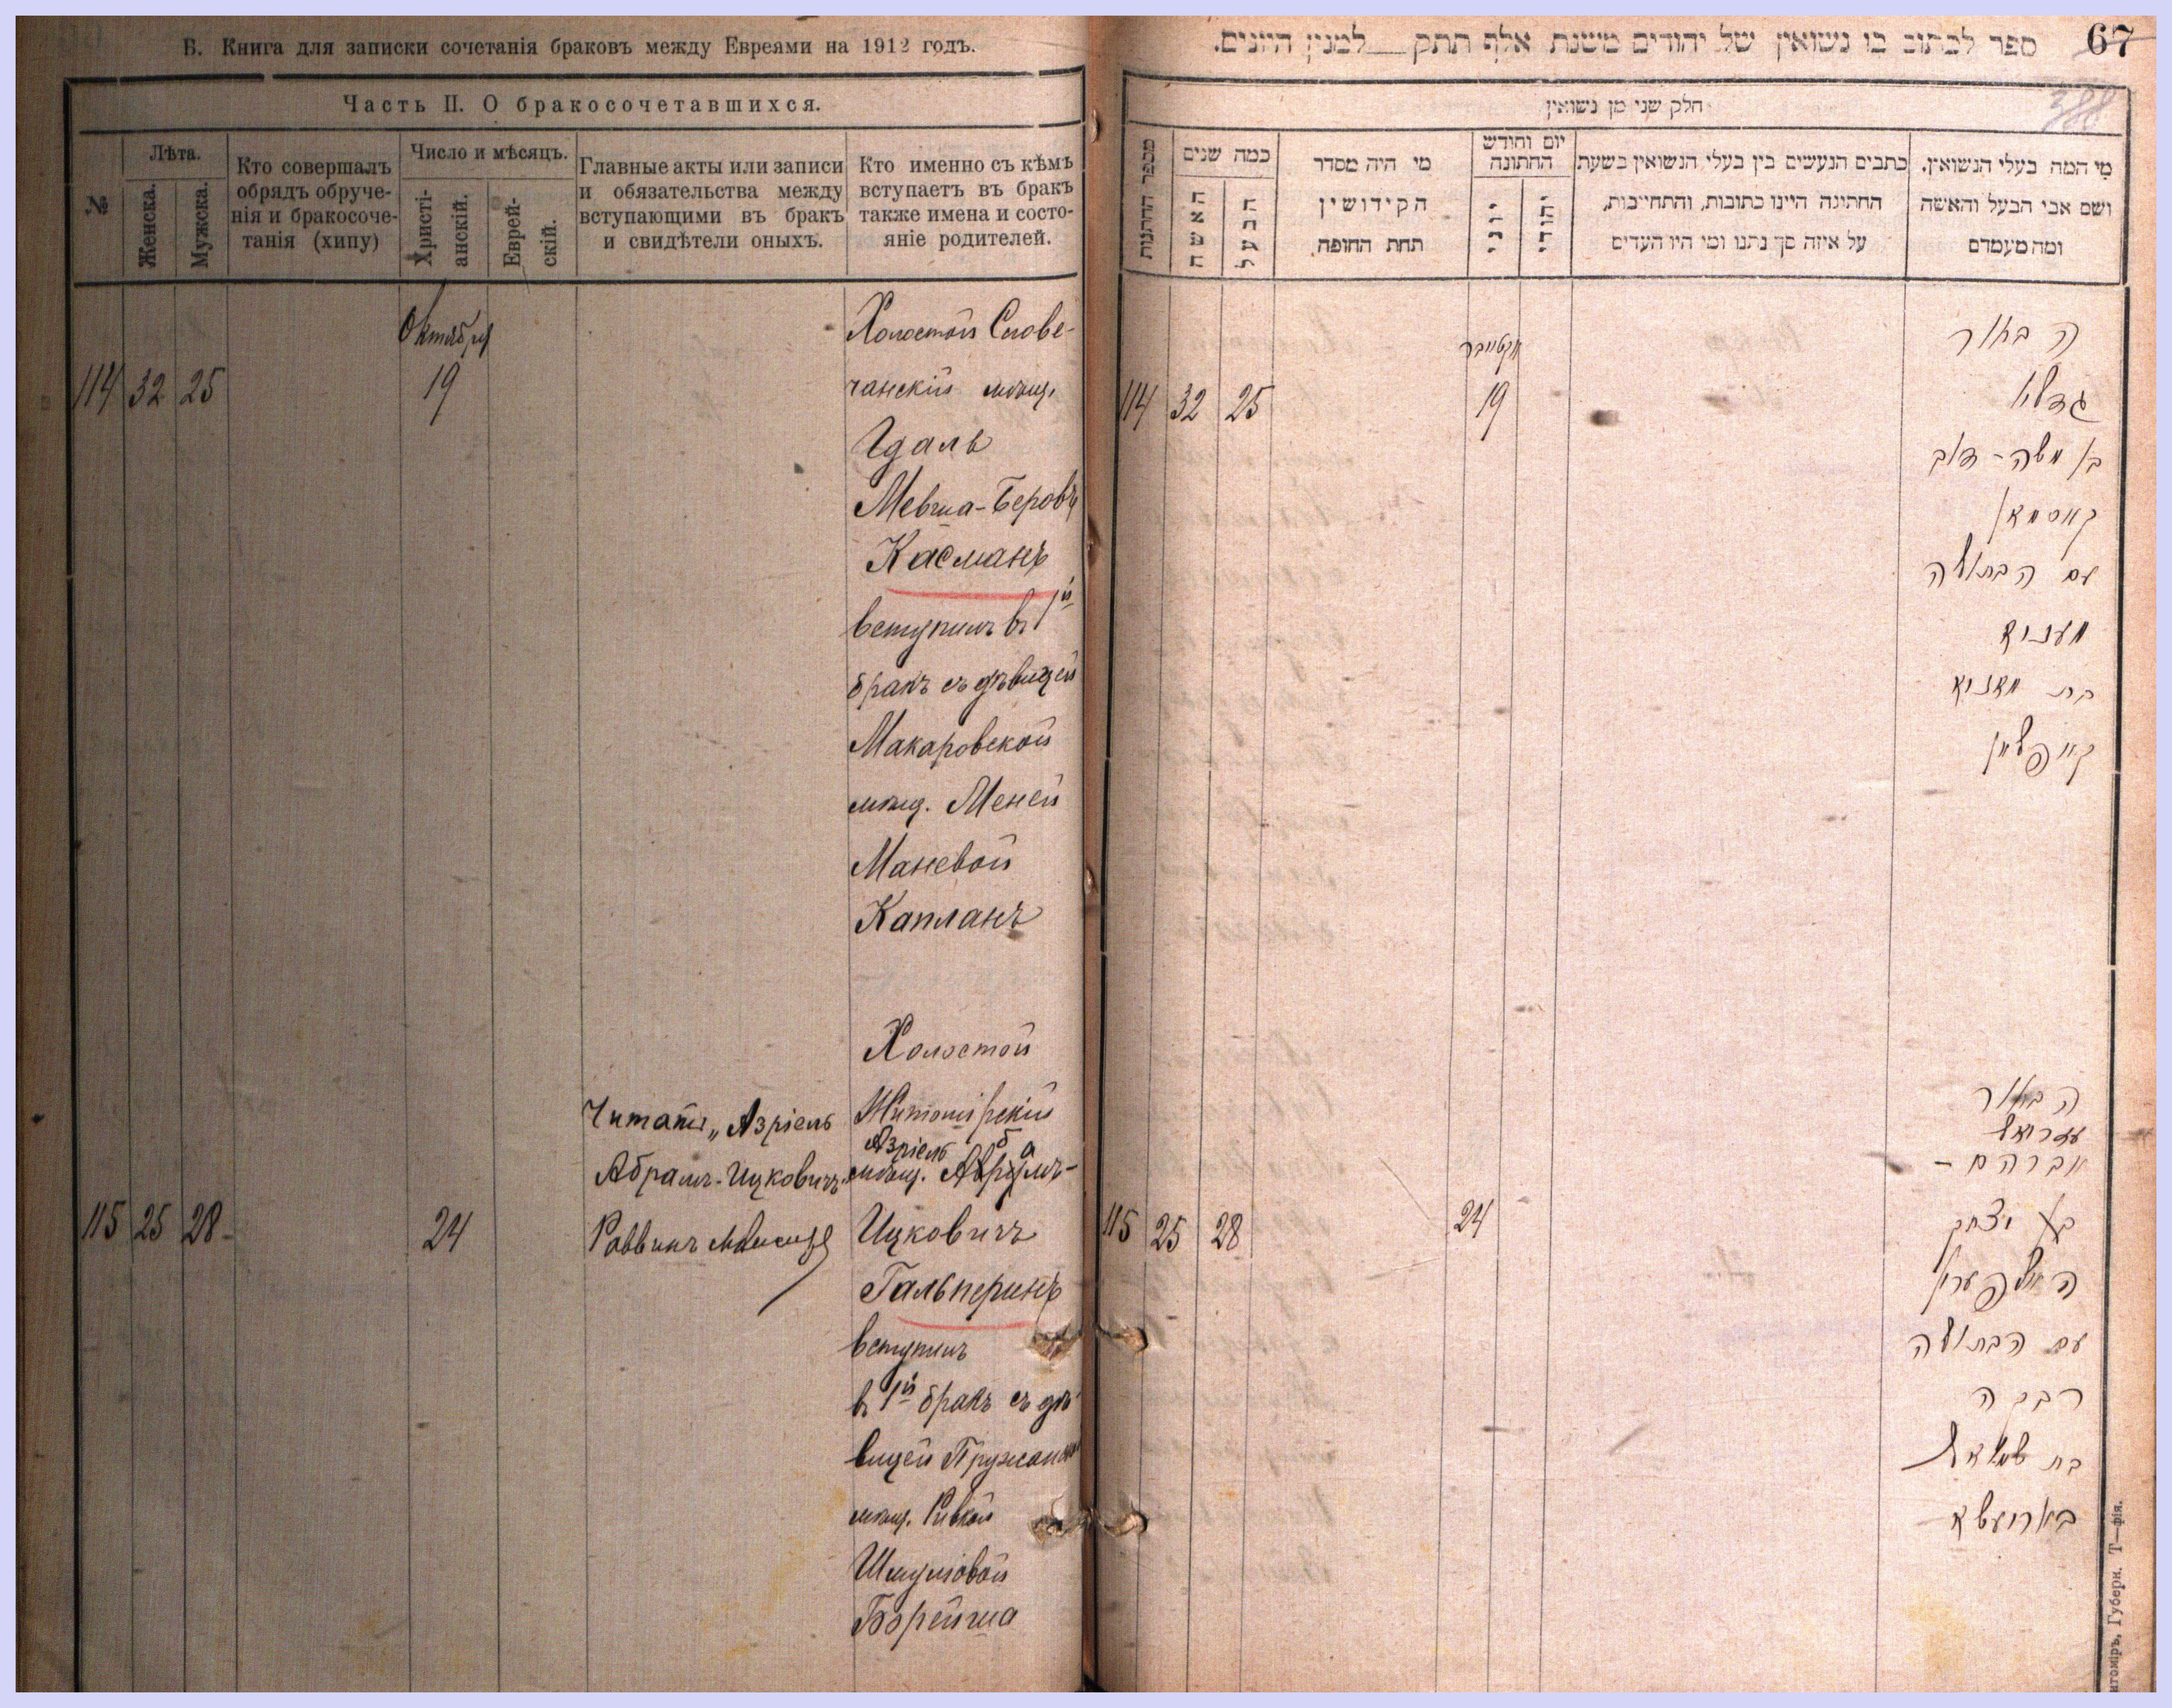 Б. Книга для записки сочетанія браковъ между Евреями на 1912 годъ.
Часть II. О бракосочетавшихся.
№
Лѣта.
Женска.
Мужска.
Кто совершалъ
обрядъ обруче-
нія и бракосоче-
танія (хипу)
Число и мѣсяцъ.
Христі-
анскій.
Еврей-
скій.
Главные акты или записи
и обязательства между
вступающими въ бракъ
и свидѣтели оныхъ.
Кто именно съ кѣмъ
вступаетъ въ бракъ
также имена и состо-
яніе родителей.
Октября
114 32 25 19
Холостой Слове-
чанскій мѣщ.
Гдаль
Мевша-Беровъ
Касманъ
вступилъ въ 1й
бракъ съ дѣвицей
Макаровской
мѣщ. Меней
Маневой
Капланъ
115 25 28 24
Читать „Азріель
Абрамъ-Ицковичъ
Раввинъ
Холостой
Житомірскій
Азріель
мѣщ. Абрамъ-
Ицковичъ
Гальперинъ
вступилъ
въ 1й бракъ съ дѣ
вицей Пружанской
мѣщ. Ривкой
Шмуліовой
Борейша
67
ספר לכתוב בו נשואין של יהודים משנת אלף תתק למנין היונים.
388
חלק שני מן נשואין
מספר החתונות
כמה שנים
האשה
הבעל
מי היה מסדר
הקידושין
תחת החופה
יום וחודש
החתונה
יוני
יהודי
כתבים הנעשים בין בעלי הנשואין בשעת
החתונה היינו כתובות, והתחייבות,
על איזה סך נתנו ומי היו העדים
מי המה בעלי הנשואין.
ושם אבי הבעל והאשה
ומה מעמדם
אקטויבר
114 32 25 19
ה בחור
גדליו
בן משה-דוב
קאסמאן
עם הבתולה
מעניא
בת מאניא
קאפלאן
115 25 28 24
ה בחור
עזריאל
אברהם -
בן יצחק
האלפערין
עם הבתולה
רבקה
בת שמואל
בארוישא
итоміръ, Губерн. Т—фія.